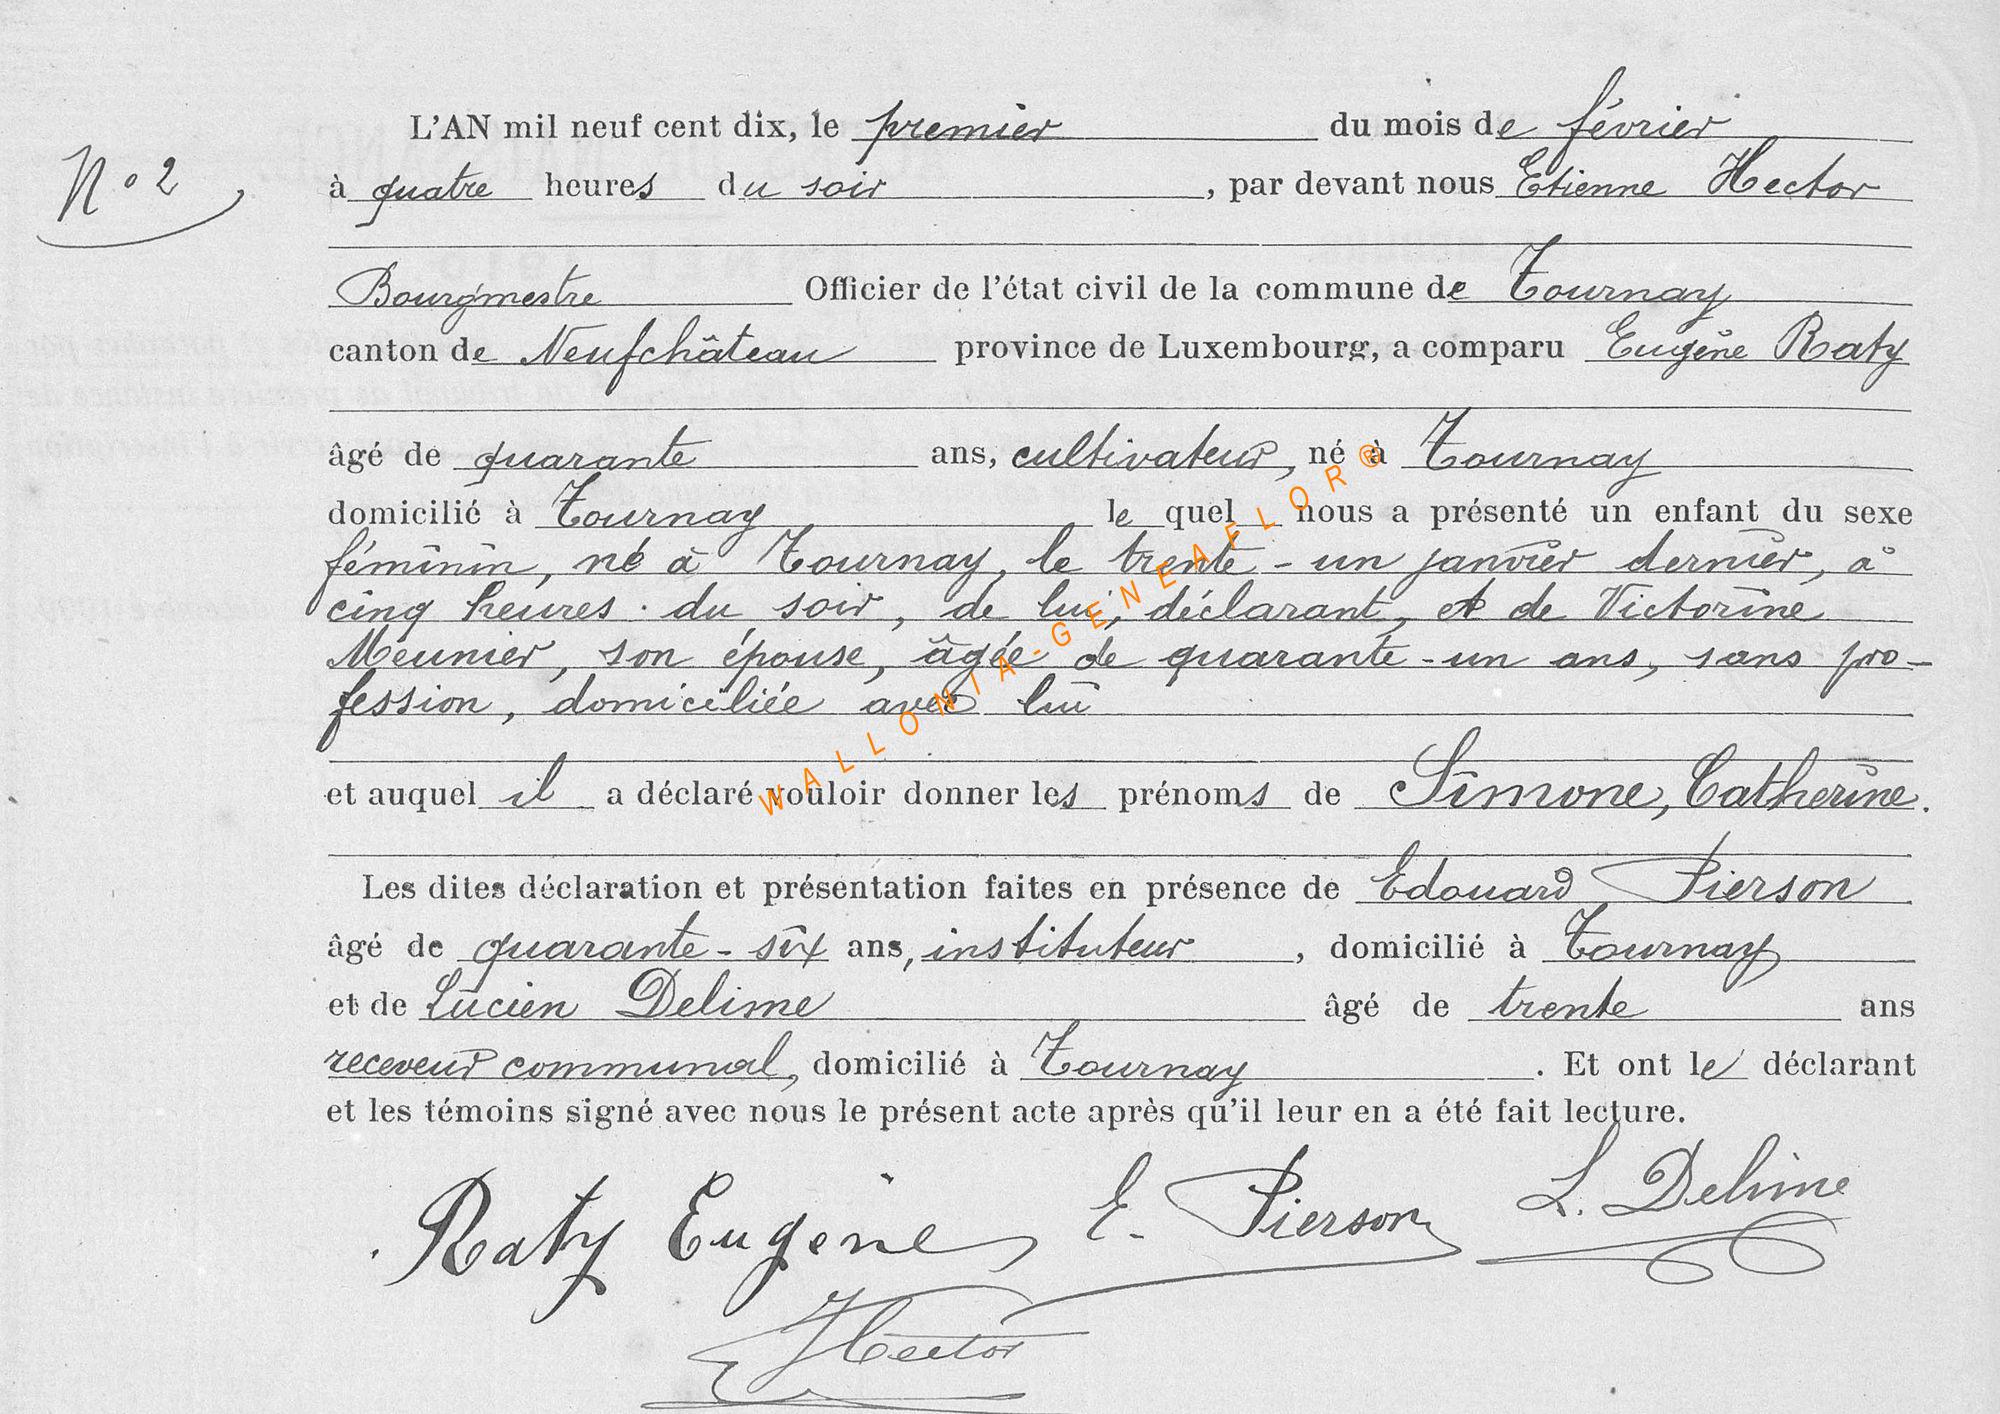 N° 2
L'AN mil neuf cent dix, le premier du mois de février
à quatre heures du soir, par devant nous Etienne Hector
Bourgmestre Officier de l'état civil de la commune de Tournay
canton de Neufchâteau province de Luxembourg, a comparu Eugêne Raty
âgé de quarante ans, cultivateur, né à Tournay
domicilié à Tournay le quel nous a présenté un enfant du sexe
féminin, né à Tournay, le trente-un janvier dernier, à
cinq heures du soir, de lui, déclarant, et de Victorine
Meunier, son épouse, âgée de quarante-un ans, sans pro-
fession, domiciliée avec lui
et auquel il a déclaré vouloir donner les prénoms de Simone, Catherine.
Les dites déclaration et présentation faites en présence de Edouard Pierson
âgé de quarante-six ans, instituteur, domicilié à Tournay
et de Lucien Delime âgé de trente ans
receveur communal, domicilié à Tournay. Et ont le déclarant
et les témoins signé avec nous le présent acte après qu'il leur en a été fait lecture.
Raty Eugène E. Pierson L. Delime
Hector
WALLONIA-GENEAFLOR®